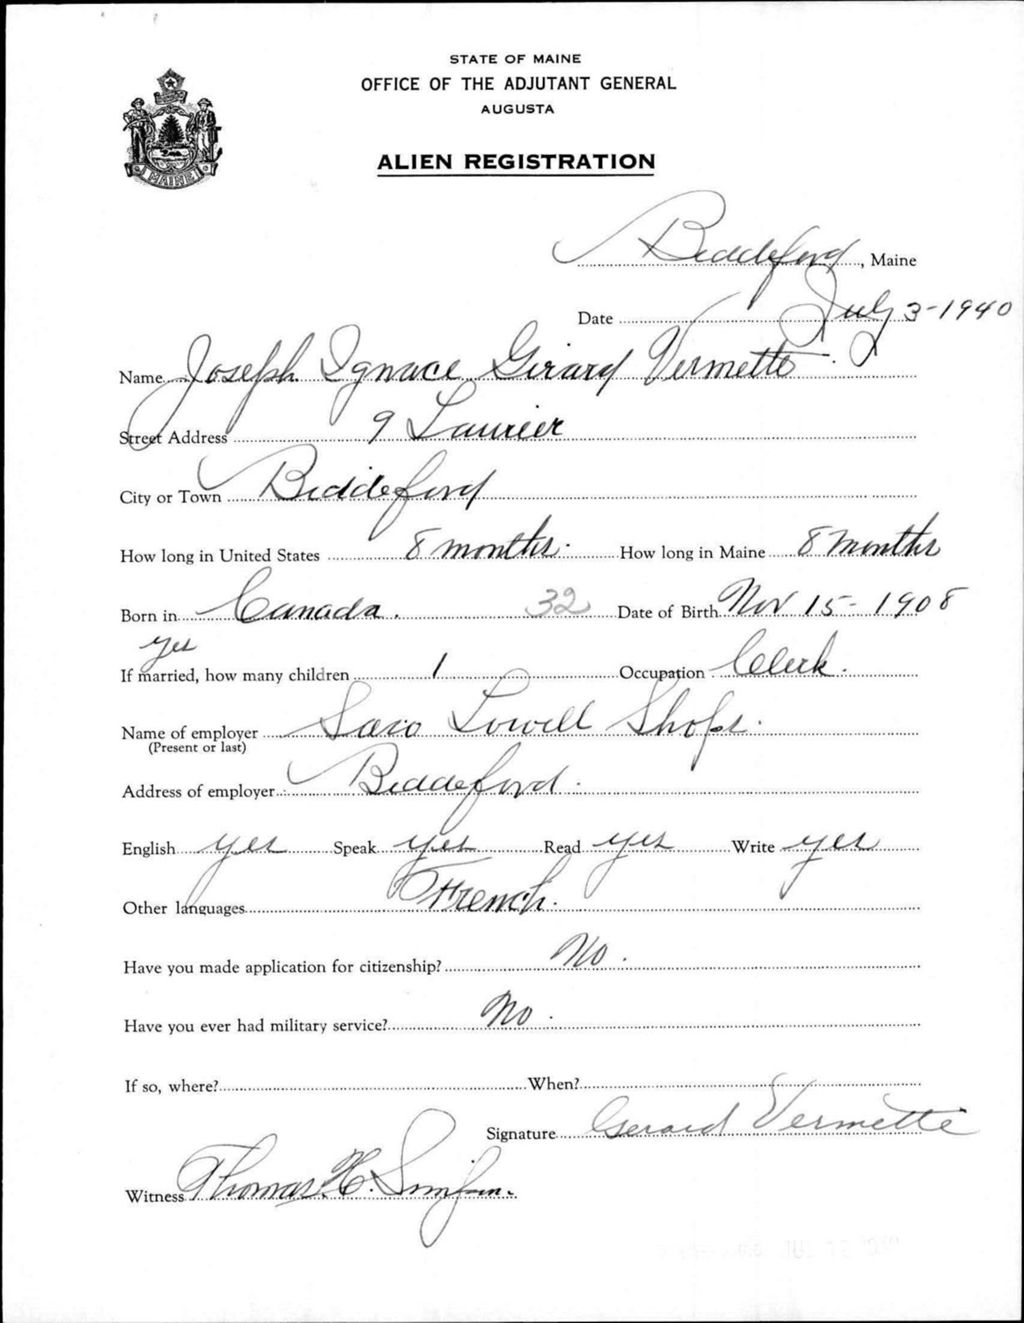 STATE OF MAINE
OFFICE OF THE ADJUTANT GENERAL
AUGUSTA
ALIEN REGISTRATION
MAINE
Biddeford, Maine
Date July 3-1940
Name Joseph Ignace Girard Vermette
Street Address 9 Laurier
City or Town Biddeford
How long in United States 8 months. How long in Maine 8 months
Born in Canada. 32 Date of Birth Nov 15-1908
yes
If married, how many children 1 Occupation Clerk.
Name of employer Saco Lowell Shops.
(Present or last)
Address of employer Biddeford.
English yes Speak yes Read yes Write yes
Other languages French.
Have you made application for citizenship? No.
Have you ever had military service? No.
If so, where? When?
Signature Gerard Vermette
Witness Thomas H.